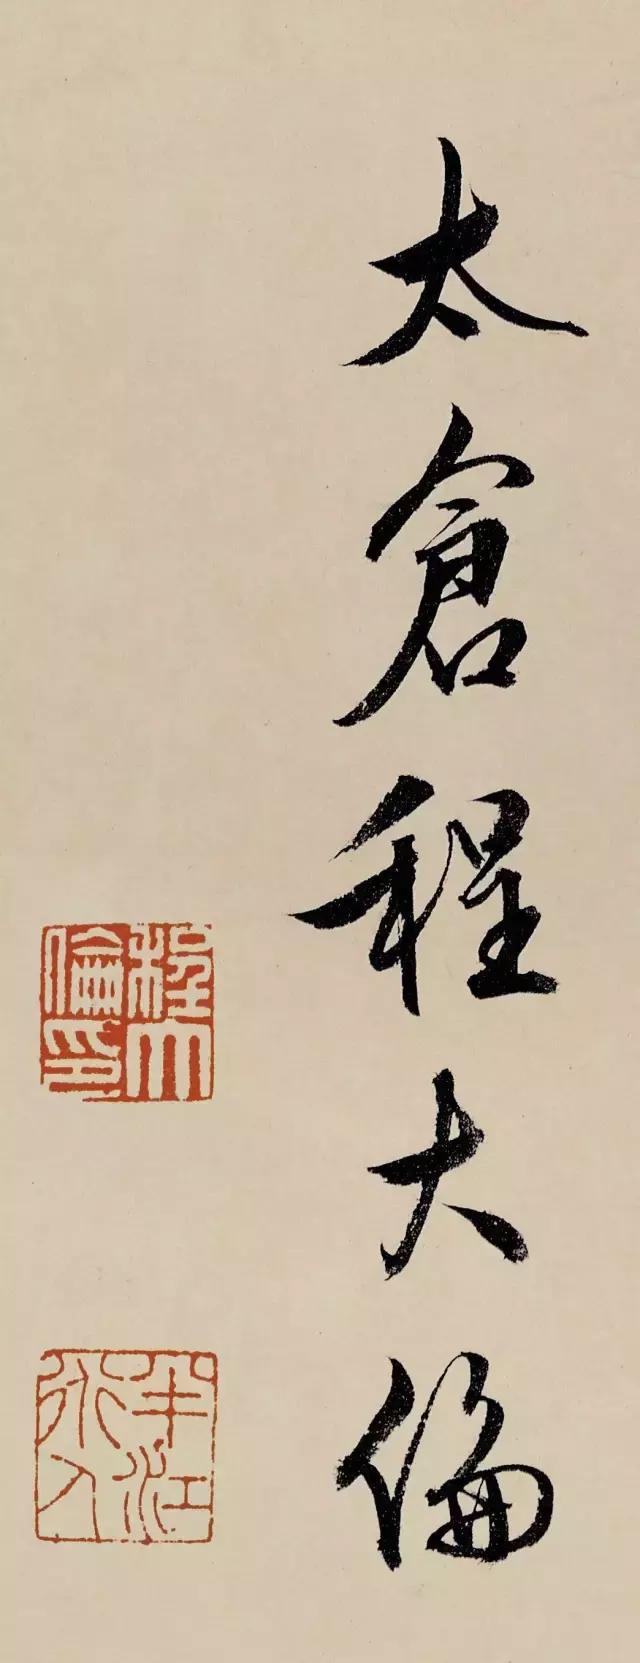 太倉程大倫
程大倫印